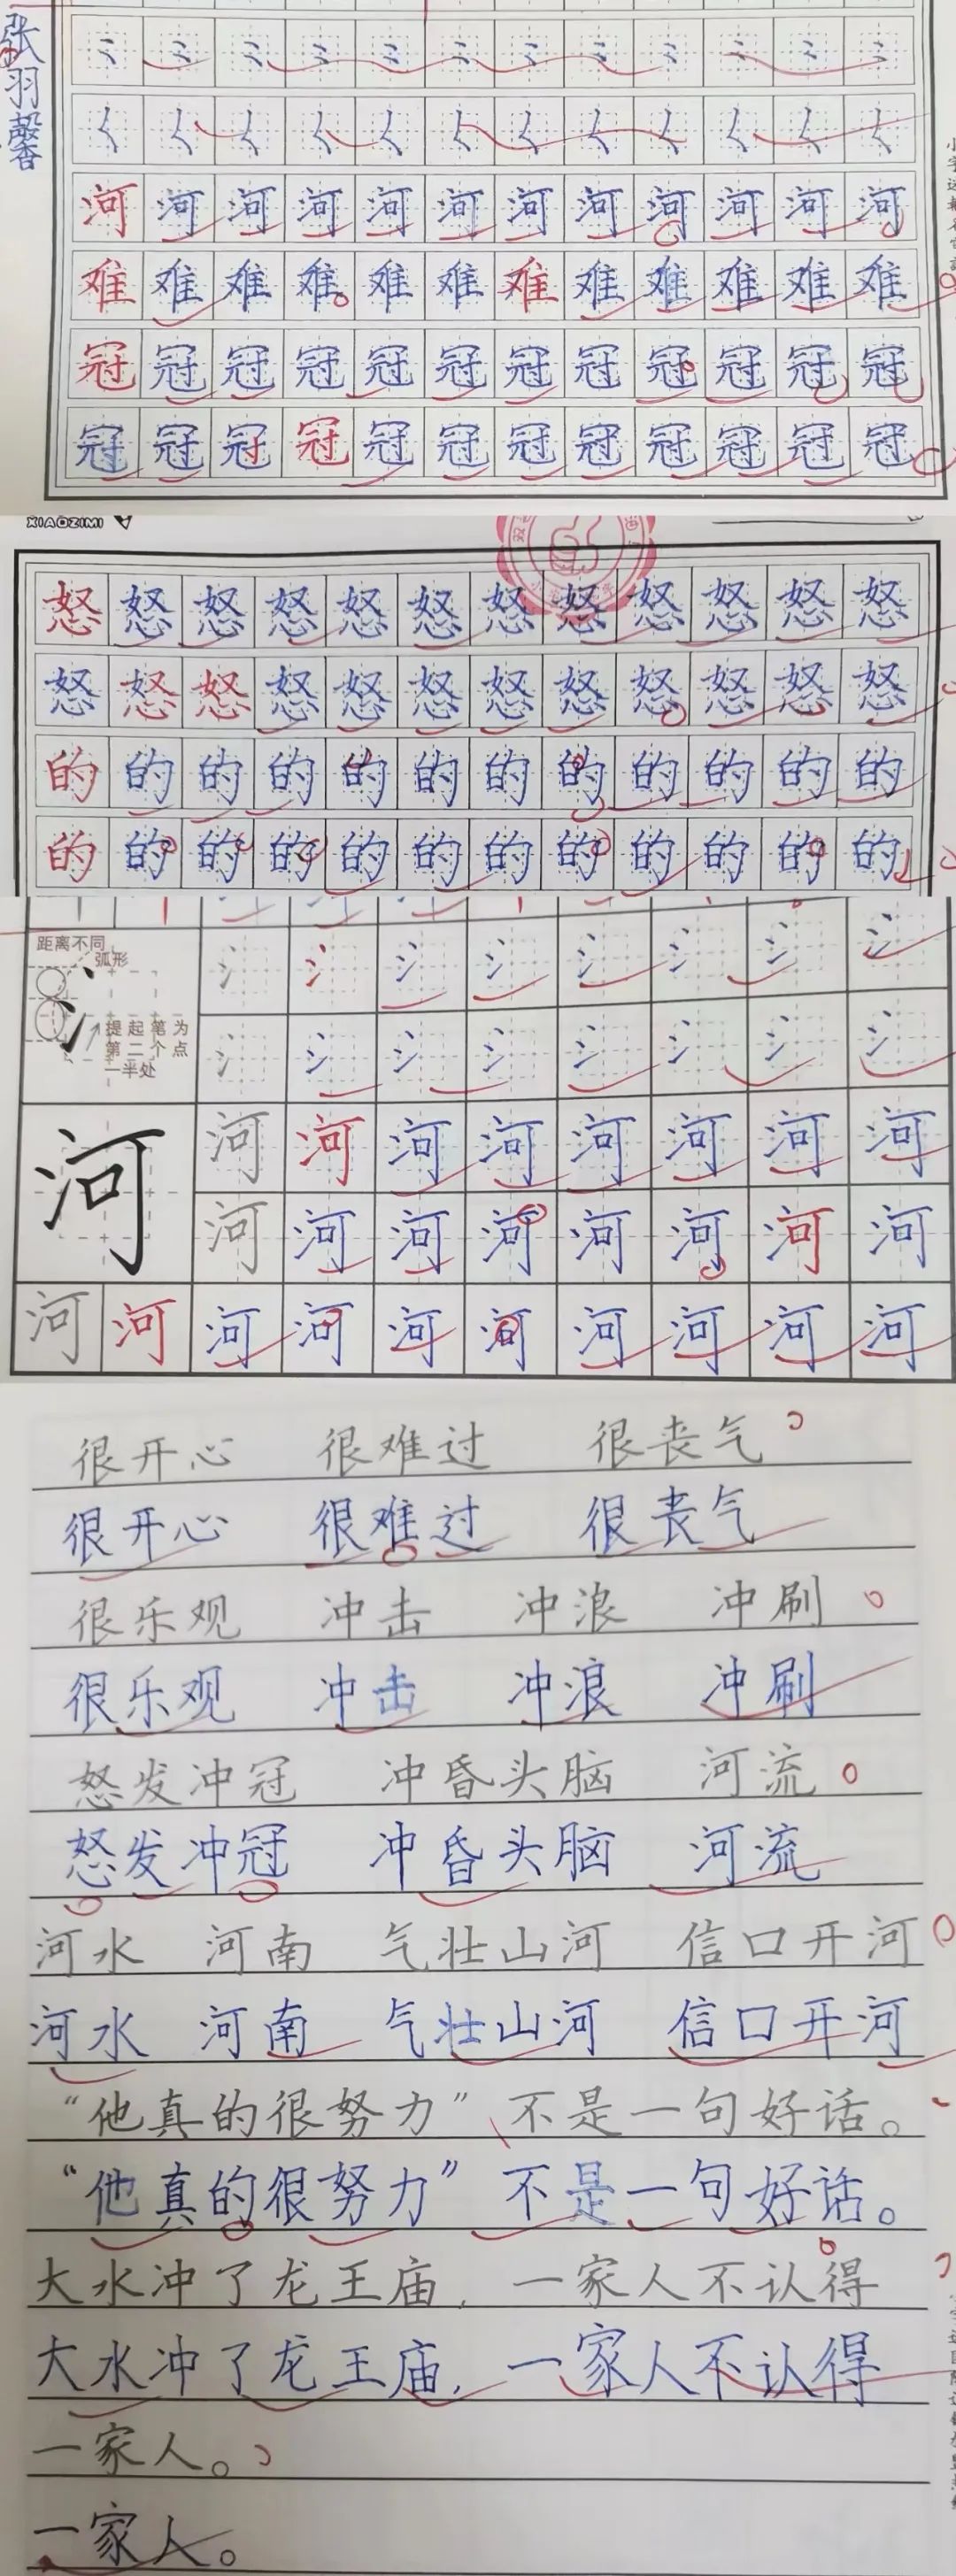 张羽馨
河河河河河河河河河河河河
难难难难难难难难难难难难
冠冠冠冠冠冠冠冠冠冠冠冠
冠冠冠冠冠冠冠冠冠冠冠冠
XIAOZIMI
怒怒怒怒怒怒怒怒怒怒怒怒
怒怒怒怒怒怒怒怒怒怒怒怒
的的的的的的的的的的的的
的的的的的的的的的的的的
距离不同
弧形
提起笔为
第二个点
一半处
氵氵氵氵氵氵氵氵氵
氵氵氵氵氵氵氵氵
河河河河河河河河河
河河河河河河河河
河河河河河河河河河河
很开心 很难过 很丧气
很开心 很难过 很丧气
很乐观 冲击 冲浪 冲刷
很乐观 冲击 冲浪 冲刷
怒发冲冠 冲昏头脑 河流
怒发冲冠 冲昏头脑 河流
河水 河南 气壮山河 信口开河
河水 河南 气壮山河 信口开河
“他真的很努力”不是一句好话。
“他真的很努力”不是一句好话。
大水冲了龙王庙,一家人不认得
大水冲了龙王庙,一家人不认得
一家人。
一家人。